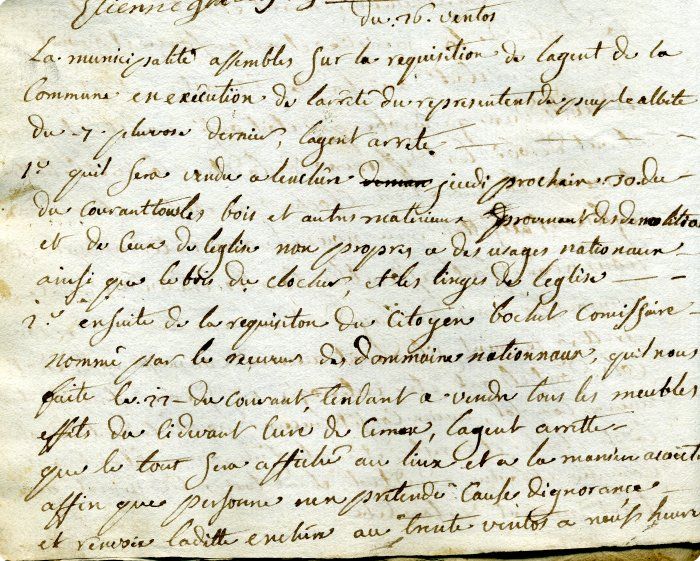 Etienne
du 26. ventos
La municipalité assembles sur la requisition de lagent de la
Commune en exécution de larrêté du représentent du peuple albite
du 7. pluvose dernier, lagent arrete.
1.º quil sera vendu a lenchére jeudi prochain 30. du
du courant tous les bois et autres materiaux provenant des demolition
et de Ceux de leglise non propres a des usages nationaux
ainsi que le bois du clocher, et les linges de leglise
2.º ensuite de la requisiton du Citoyen bochet Comissaire
nommé par le receveur des dommaine nationnaux, quil nous
faite le 22 du courant, tendant a vendre tous les meubles
effets du cidevant Curé de Cimox, lagent arrette
que le tout sera affiché au lieux et a la maniere
affin que personne nen pretende Cause dignorance
et renvoie laditte enchére au trente ventos a neufs heure